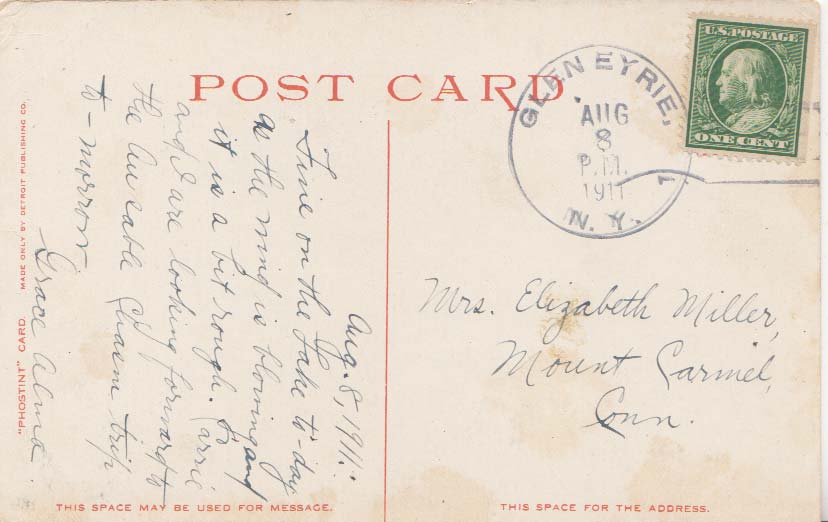 POST CARD
GLEN EYRIE,
AUG
8
P.M.
1911
N. Y.
U.S. POSTAGE
ONE CENT
Aug. 8, 1911.
Fine on the Lake to-day
as the wind is blowing and
it is a bit rough. Carrie
and I are looking forward to
the Au sable Chasm trip
to-morrow
Grace Alma.
Mrs. Elizabeth Miller,
Mount Carmel,
Conn.
"PHOSTINT" CARD. MADE ONLY BY DETROIT PUBLISHING CO.
THIS SPACE MAY BE USED FOR MESSAGE.
THIS SPACE FOR THE ADDRESS.